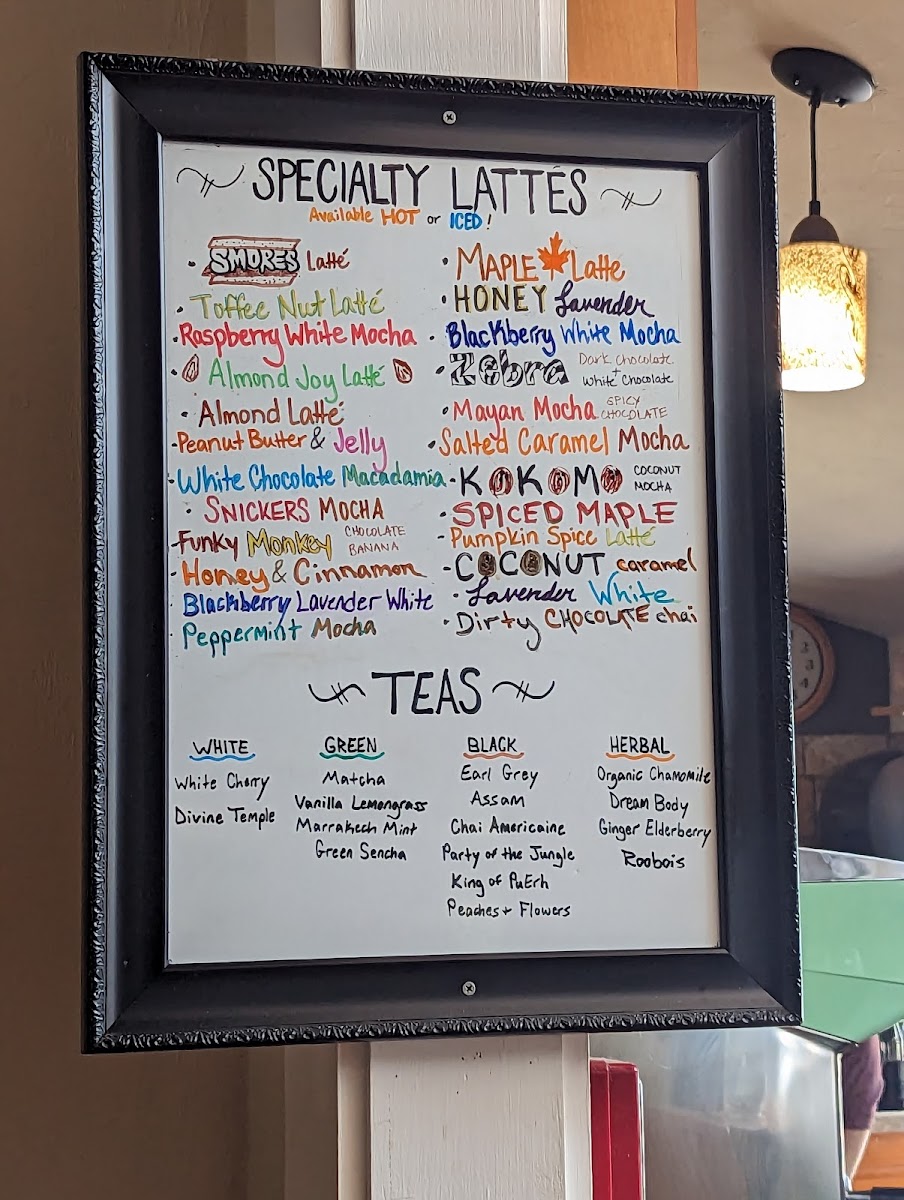 SPECIALTY LATTÉS
Available HOT or ICED!
• SMORES Latté
• Toffee Nut Latté
• Raspberry White Mocha
• Almond Joy Latté
• Almond Latté
• Peanut Butter & Jelly
• White Chocolate Macadamia
• SNICKERS MOCHA
• Funky Monkey CHOCOLATE BANANA
• Honey & Cinnamon
• Blackberry Lavender White
• Peppermint Mocha
• MAPLE Latte
• HONEY Lavender
• Blackberry White Mocha
• Zebra Dark Chocolate + White Chocolate
• Mayan Mocha SPICY CHOCOLATE
• Salted Caramel Mocha
• KOKOMO COCONUT MOCHA
• SPICED MAPLE
• Pumpkin Spice Latté
• COCONUT caramel
• Lavender White
• Dirty CHOCOLATE chai
TEAS
WHITE
White Cherry
Divine Temple
GREEN
Matcha
Vanilla Lemongrass
Marrakech Mint
Green Sencha
BLACK
Earl Grey
Assam
Chai Americaine
Party of the Jungle
King of PuErh
Peaches + Flowers
HERBAL
Organic Chamomile
Dream Body
Ginger Elderberry
Roobois